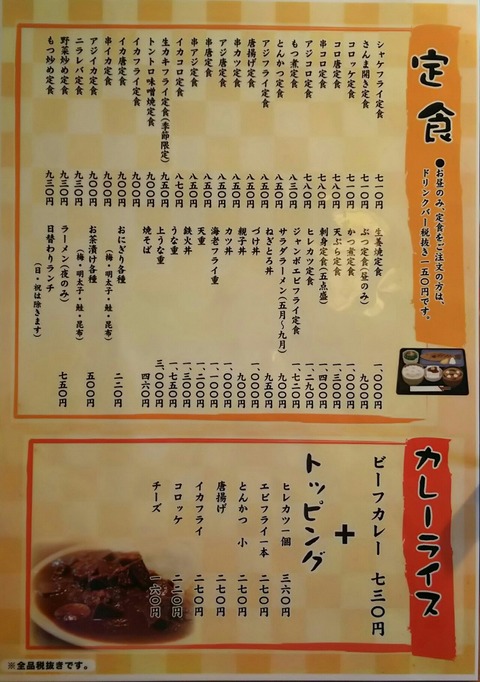 定食
●お昼のみ、定食をご注文の方は、
ドリンクバー税抜き一五〇円です。
シャケフライ定食 七一〇円
さんま開き定食 七一〇円
コロッケ定食 七一〇円
コロ唐定食 七八〇円
串コロ定食 七八〇円
アジコロ定食 七八〇円
もつ煮定食 八三〇円
とんかつ定食 八五〇円
アジフライ定食 八五〇円
唐揚げ定食 八五〇円
串カツ定食 八五〇円
アジ唐定食 八五〇円
串唐定食 八五〇円
串アジ定食 八五〇円
イカコロ定食 八七〇円
生カキフライ定食(季節限定) 九五〇円
トントロ味噌焼定食 九〇〇円
イカフライ定食 九〇〇円
イカ唐定食 九〇〇円
串イカ定食 九〇〇円
アジイカ定食 九〇〇円
ニラレバ定食 九三〇円
野菜炒め定食 九三〇円
もつ炒め定食 九三〇円
生姜焼定食 一、〇〇〇円
ぶつ定食(昼のみ) 九〇〇円
かつ煮定食 一、〇〇〇円
天ぷら定食 一、三〇〇円
刺身定食(五点盛) 一、四〇〇円
ヒレカツ定食 一、二九〇円
ジャンボエビフライ定食 一、七二〇円
サラダラーメン(五月〜九月) 九〇〇円
ねぎとろ丼 九五〇円
づけ丼 一、〇〇〇円
親子丼 九〇〇円
カツ丼 一、〇〇〇円
海老フライ重 一、一〇〇円
天重 一、二〇〇円
鉄火丼 一、三〇〇円
うな重 一、七五〇円
上うな重 三、〇〇〇円
焼そば 四六〇円
おにぎり各種 二二〇円
(梅・明太子・鮭・昆布)
お茶漬け各種 五〇〇円
(梅・明太子・鮭・昆布)
ラーメン(夜のみ) 七五〇円
日替わりランチ
(日・祝は除きます)
カレーライス
ビーフカレー 七三〇円
+
トッピング
ヒレカツ一個 三六〇円
エビフライ一本 二七〇円
とんかつ 小 二七〇円
唐揚げ 二七〇円
イカフライ 二七〇円
コロッケ 二二〇円
チーズ 一六〇円
※全品税抜きです。